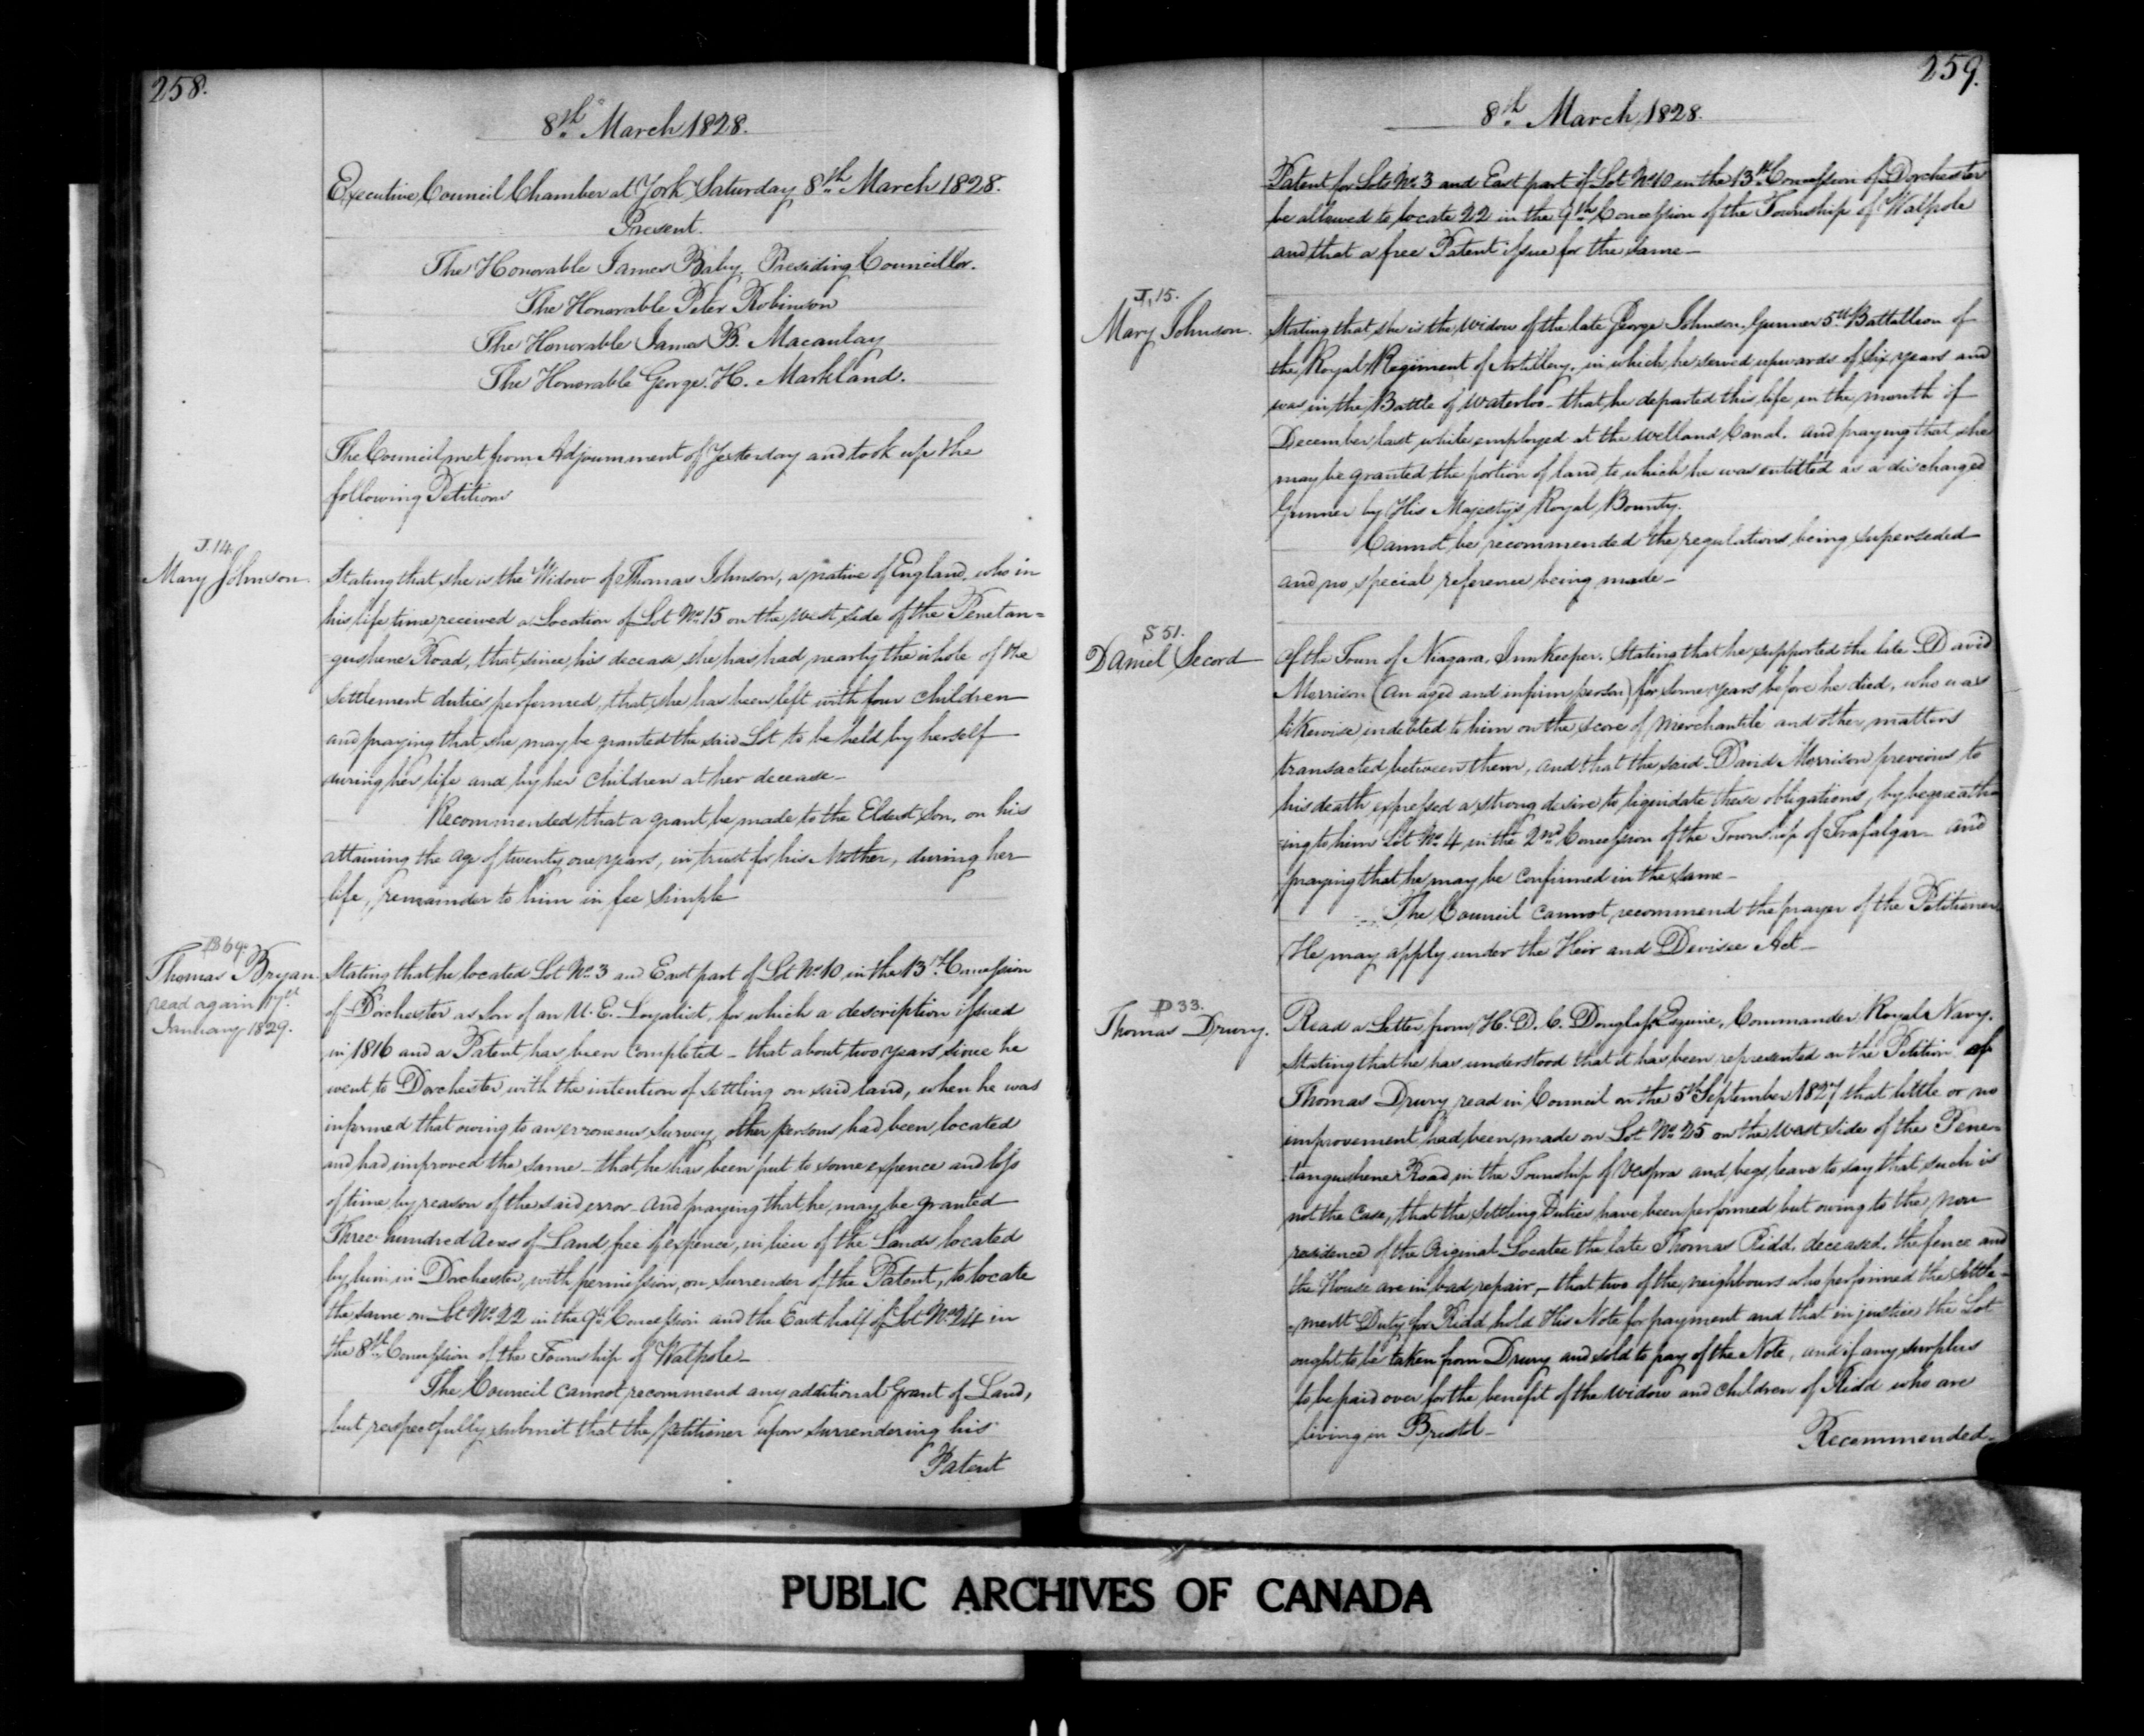 258.
8th March 1828.
Executive Council Chamber at York Saturday 8th March 1828.
Present.
The Honorable James Baby, Presiding Councillor.
The Honorable Peter Robinson
The Honorable James B. Macaulay
The Honorable George. H. Markland.
The Council met from Adjournment of Yesterday and took up the
following Petitions
J. 14.
Mary Johnson
Stating that she is the Widow of Thomas Johnson, a native of England, who in
his life time received a Location of Lot No. 15 on the west side of the Penetan=
=guishene Road, that since his decease she has had nearly the whole of the
settlement duties performed, that she has been left with four children
and praying that she may be granted the said Lot to be held by herself
during her life and by her children at her decease-
Recommended that a grant be made to the Eldest Son, on his
attaining the age of twenty one years, in trust for his Mother, during her
life, remainder to him in fee simple
B 69.
Thomas Bryan.
read again 17th
January 1829.
Stating that he located Lot No. 3 and East part of Lot No 10 in the 13th Concession
of Dorchester as son of an U. E. Loyalist, for which a description issued
in 1816 and a Patent has been completed - that about two years since he
went to Dorchester with the intention of settling on said land, when he was
informed that owing to an erroneous survey other persons had been located
and had improved the same - that he has been put to some expence and loss
of time by reason of the said error - and praying that he may be granted
Three hundred Acres of Land free of expence, in lieu of the Lands located
by him in Dorchester, with permission, on surrender of the Patent, to locate
the same on Lot No. 22 in the 9th Concession and the East half of Lot No. 24 in
the 8th Concession of the Township of Walpole-
The Council cannot recommend any additional Grant of Land,
but respectfully submit that the petitioner upon surrendering his
Patent
259.
8th March 1828.
Patent for Lots No. 3 and East part of Lot No 10 in the 13th Concession of Dorchester
be allowed to locate 22 in the 9th Concession of the Township of Walpole
and that a free Patent issue for the same-
J, 15.
Mary Johnson.
Stating that she is the Widow of the late George Johnson, Gunner 5th Battallion of
the Royal Regiment of Artillery, in which he served upwards of six years and
was in the Battle of Waterloo - that he departed this life in the month of
December last while employed at the Welland Canal. and praying that she
may be granted the portion of land to which he was entitled as a discharged
Gunner by His Majesty's Royal Bounty.
Cannot be recommended the regulations being superseded
and no special reference being made-
S 51.
Daniel Secord
Of the Town of Niagara, Innkeeper. Stating that he supported the late David
Morrison (an aged and infirm person) for some years before he died, who was
likewise indebted to him on the score of Merchantile and other matters
transacted between them, and that the said David Morrison previous to
his death expressed a strong desire to liquidate these obligations, by bequeath=
=ing to him Lot No. 4 in the 2nd Concession of the Township of Trafalgar and
praying that he may be confirmed in the same-
The Council cannot recommend the prayer of the Petitioner.
He may apply under the Heir and Devisee Act-
D 33.
Thomas Drury.
Read a Letter from H. D. C. Douglass Esquire, Commander Royal Navy.
Stating that he has understood that it has been represented on the Petition of
Thomas Drury read in Council on the 5th September 1827 that little or no
improvement had been made on Lot No 25 on the West side of the Pene=
=tanguishene Road in the Township of Vespra and begs leave to say that such is
not the case, that the Settling Duties have been performed but owing to the non
residence of the Original Locatee the late Thomas Ridd, deceased, the fence and
the House are in bad repair, - that two of the neighbours who performed the Settle-
-ment Duty for Ridd hold His Note for payment and that in justice the Lot
ought to be taken from Drury and sold to pay of the Note, and if any surplus
to be paid over for the benefit of the widow and children of Ridd who are
living in Bristol-
Recommended-
PUBLIC ARCHIVES OF CANADA